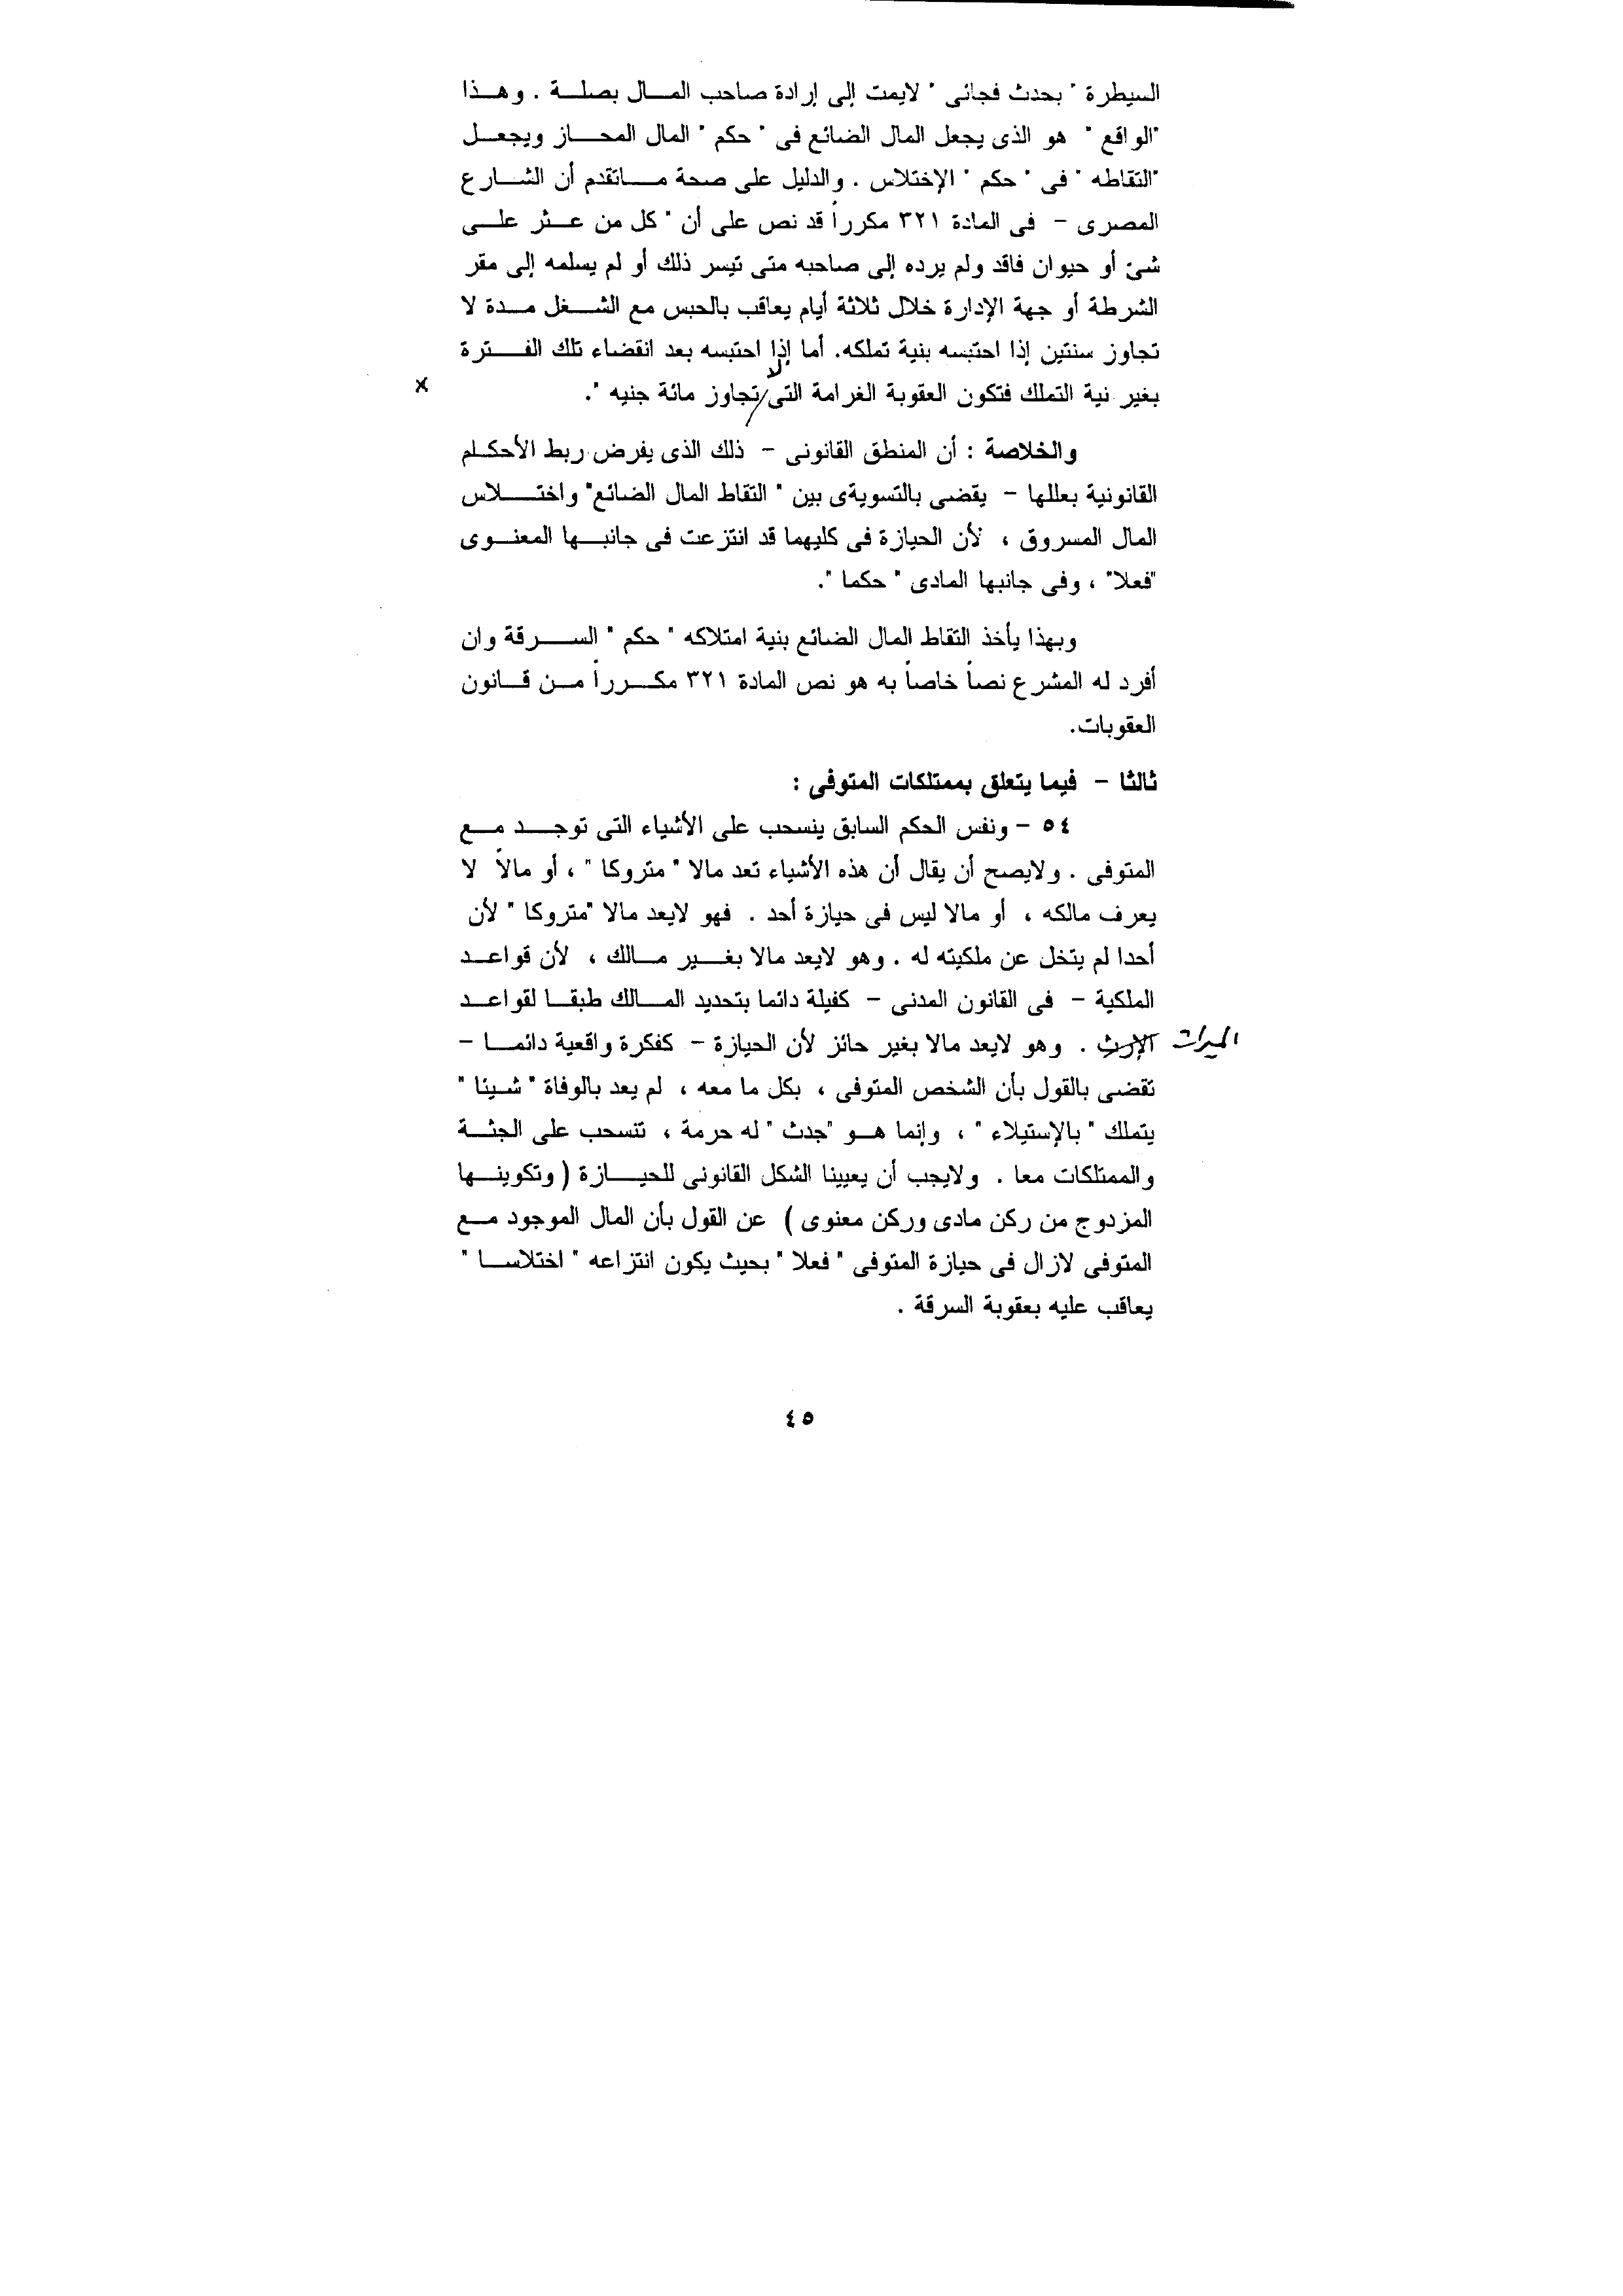 السيطرة " بحدث فجائى " لايمت إلى إرادة صاحب المال بصلة . وهذا
"الواقع " هو الذى يجعل المال الضائع فى " حكم " المال المحاز ويجعل
"التقاطه " فى " حكم " الإختلاس . والدليل على صحة ماتقدم أن الشارع
المصرى - فى المادة ٣٢١ مكرراً قد نص على أن " كل من عثر على
شئ أو حيوان فاقد ولم يرده إلى صاحبه متى تيسر ذلك أو لم يسلمه إلى مقر
الشرطة أو جهة الإدارة خلال ثلاثة أيام يعاقب بالحبس مع الشغل مدة لا
تجاوز سنتين إذا احتبسه بنية تملكه. أما إذا احتبسه بعد انقضاء تلك الفترة
بغير نية التملك فتكون العقوبة الغرامة التى لا تجاوز مائة جنيه ". x
والخلاصة : أن المنطق القانونى - ذلك الذى يفرض ربط الأحكلم
القانونية بعللها - يقضى بالتسويةى بين " التقاط المال الضائع" واختلاس
المال المسروق ، لأن الحيازة فى كليهما قد انتزعت فى جانبها المعنوى
"فعلا" ، وفى جانبها المادى " حكما ".
وبهذا يأخذ التقاط المال الضائع بنية امتلاكه " حكم " السرقة وان
أفرد له المشرع نصاً خاصاً به هو نص المادة ٣٢١ مكرراً من قانون
العقوبات.
ثالثا - فيما يتعلق بممتلكات المتوفى :
٥٤ - ونفس الحكم السابق ينسحب على الأشياء التى توجد مع
المتوفى . ولايصح أن يقال أن هذه الأشياء تعد مالا " متروكا " ، أو مالاً لا
يعرف مالكه ، أو مالا ليس فى حيازة أحد . فهو لايعد مالا "متروكا " لأن
أحدا لم يتخل عن ملكيته له . وهو لايعد مالا بغير مالك ، لأن قواعد
الملكية - فى القانون المدنى - كفيلة دائما بتحديد المالك طبقا لقواعد
الميراث الإرث . وهو لايعد مالا بغير حائز لأن الحيازة - كفكرة واقعية دائما -
تقضى بالقول بأن الشخص المتوفى ، بكل ما معه ، لم يعد بالوفاة " شيئا "
يتملك " بالإستيلاء " ، وإنما هو "جدث " له حرمة ، تتسحب على الجثة
والممتلكات معا . ولايجب أن يعيينا الشكل القانونى للحيازة ( وتكوينها
المزدوج من ركن مادى وركن معنوى ) عن القول بأن المال الموجود مع
المتوفى لازال فى حيازة المتوفى " فعلا " بحيث يكون انتزاعه " اختلاسا "
يعاقب عليه بعقوبة السرقة .
٤٥